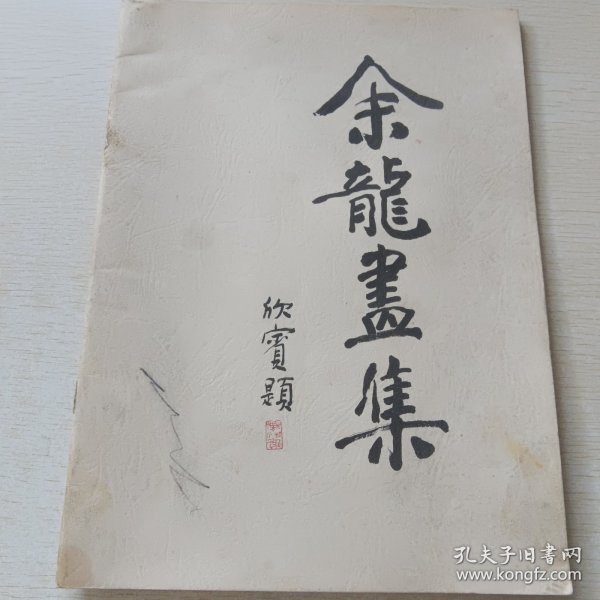 余龍畫集
欣賓題
孔夫子旧书网
www.kongfz.com